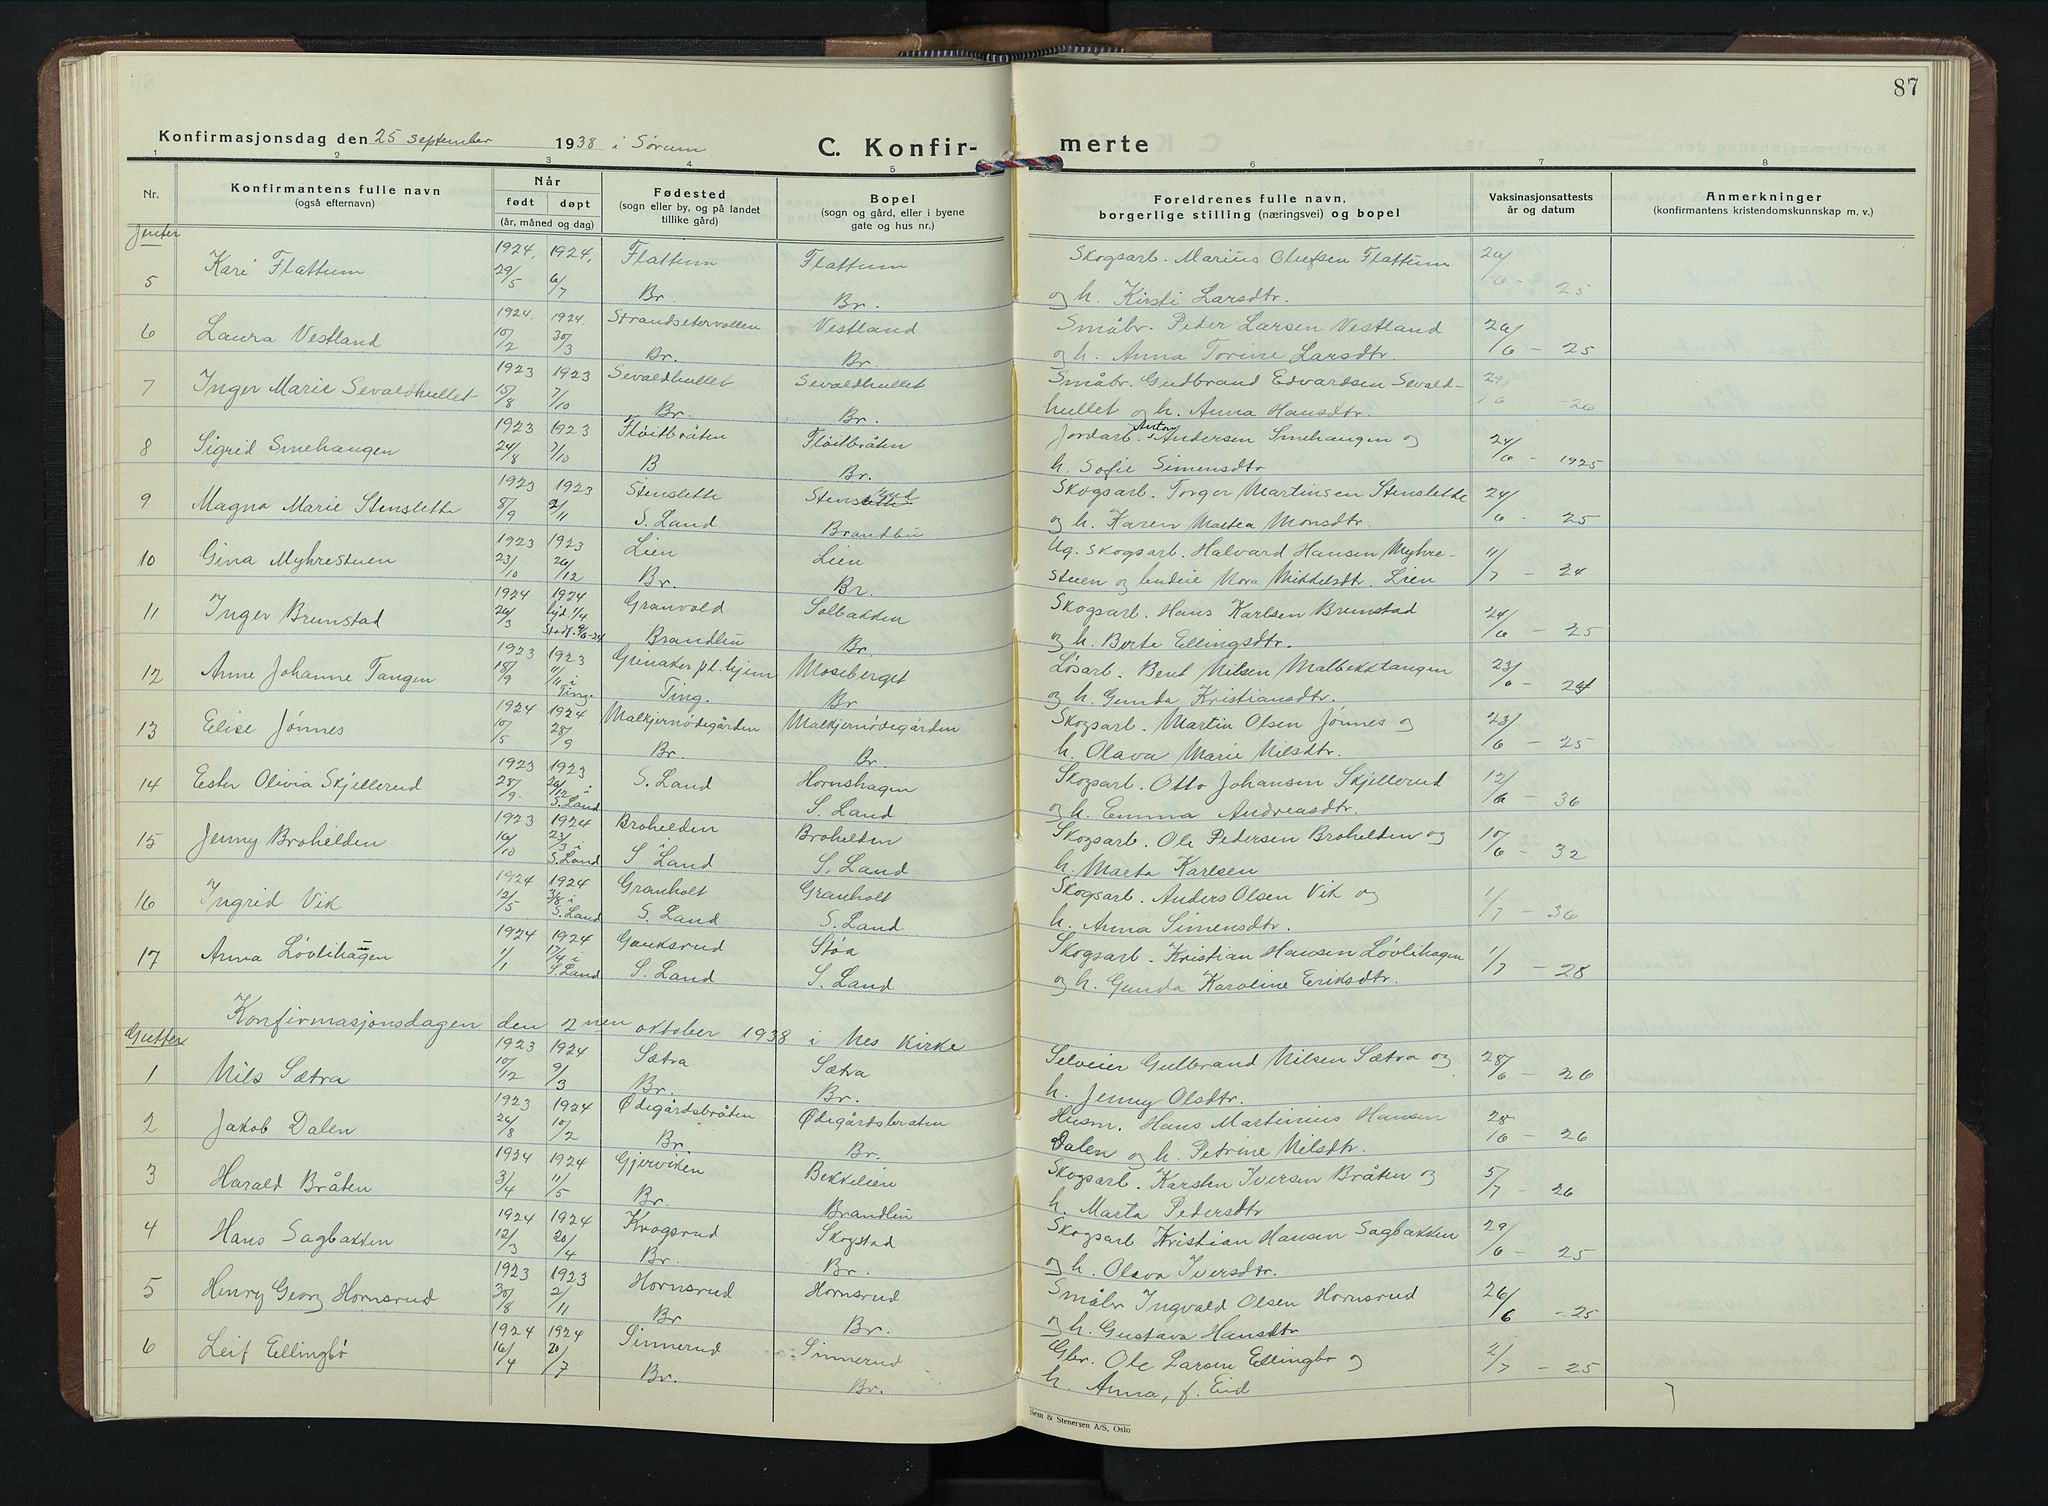 87
Konfirmasjonsdag den 25 september 1938 i Sørum
C. Konfir-
merte
1 2 3 4 5 6 7 8
Nr.
Konfirmantens fulle navn
(også efternavn)
Når
født døpt
(år, måned og dag)
Fødested
(sogn eller by, og på landet
tillike gård)
Bopel
(sogn og gård, eller i byene
gate og hus nr.)
Foreldrenes fulle navn,
borgerlige stilling (næringsvei) og bopel
Vaksinasjonsattests
år og datum
Anmerkninger
(konfirmantens kristendomskunnskap m. v.)
Jenter
5 Kari Flattum 1924, 29/5 1924, 6/7 Flattum Br. Flattum Br. Skogsarb. Marius Olufsen Flattum
og h. Kirsti Larsdtr. 26/6 - 25
6 Laura Vestland 1924. 10/2 1924. 30/3 Strandsetervollen Br. Vestland Br. Småbr. Peder Larsen Vestland
og h. Anna Torine Larsdtr. 26/6 - 25
7 Inger Marie Sevaldhullet 1923 15/8 1923 7/10 Sevaldhullet Br. Sevaldhullet Br. Småbr. Gudbrand Edvardsen Sevald-
hullet og h. Anna Hansdtr. 24/6 - 26
8 Sigrid Smehaugen 1923 24/8 1923 7/10 Fløitbråten B Fløitbråten Br. Jordarb. Anton Andersen Smehaugen og
h. Sofie Simensdtr 24/6 - 1925
9 Magna Marie Stenslette 1923 8/9 1923 2/11 Stenslette S. Land Brandbu Skogsarb. Torger Martinsen Stenslette
og h. Karen Martea Monsdtr. 24/6 - 25
10 Gina Myhrestuen 1923 23/10 1923 26/12 Lien Br. Lien Br. Ug. skogsarb. Halvard Hansen Myhre-
stuen og budeie Kora Mikkelsdtr. Lien 11/7 - 24
11 Inger Brunstad 1924 26/3 1924 hjd. 1/4 Stadf. 9/6-24 Granvold Brandbu Solbakken Br. Skogsarb. Hans Karlsen Brunstad
og h. Berte Ellingsdtr. 24/6 - 25
12 Anne Johanne Tangen 1923 18/9 1923 11/11 i Ting. Grinaker pl. hjem Ting. Moseberget Br Løsarb. Bent Nilsen Malbekktangen
og h. Gunda Kristiansdtr. 23/6 - 24
13 Elise Jønnes 1924 10/5 1924 28/9 Malkjernødegården Br. Malkjernødegården Br. Skogsarb. Martin Olsen Jønnes og
h. Olava Marie Nilsdtr. 23/6 - 25
14 Ester Olivia Skjellerud 1923 28/9. 1923 26/12 i S. Land S. Land Hornshagen S. Land Skogsarb. Otto Johansen Skjellerud
og h. Emma Andreasdtr. 12/6 - 36
15 Jenny Brohelden 1923 16/10 1924 23/3 i S. Land Brohelden S Land Brohelden S. Land Skogsarb. Ole Pedersen Brohelden og
h. Marta Karlsen 10/6 - 32
16 Ingrid Vik 1924 12/5 1924 3/8 i S. Land Granholt S. Land Granholt S. Land Skogsarb. Anders Olsen Vik og
h. Anna Simensdtr. 1/7 - 36
17 Anna Løvlihagen 1924 1/1 1924 17/4 i S. Land Gauksrud S. Land Støa S. Land Skogsarb. Kristian Hansen Løvlihagen
og h. Gunda Karoline Eriksdtr. 1/7 - 28
Konfirmasjonsdagen den 2nen oktober 1938 i Nes Kirke
Gutter
1 Nils Sætra 1923 10/12 1924 9/3 Sætra Br. Sætra Br. Selveier Gulbrand Nilsen Sætra og
h. Jenny Olsdtr. 28/6 - 26
2 Jakob Dalen 1923 26/8 1924 10/2 Ødegårdsbråten Br. Ødegårdsbråten Br. Husm. Hans Martinius Hansen
Dalen og h. Petrine Nilsdtr. 28/6 - 26
3 Harald Bråten 1924 3/4 1924 11/5 Gjerviken Br. Bekkelien Brandbu Skogsarb. Karsten Iversen Bråten og
h. Marta Pedersdtr 5/7 - 26
4 Hans Sagbakken 1924 12/3 1924 20/4 Krogsrud Br. Skogstad Br. Skogsarb Kristian Hansen Sagbakken
og h. Olava Iversdtr. 29/6 - 25
5 Henry Georg Hornsrud 1923 30/8 1923 2/11 Hornsrud Br Hornsrud Br. Småbr Ingvald Olsen Hornsrud
og h. Gustava Hansdtr 26/6 - 25
6 Leif Ellingbø 1924 16/4 1924 20/7 Sinnerud Br. Sinnerud Br. Gbr. Ole Larsen Ellingbø og
h. Anna, f. Eid 2/7 - 25
Sem & Stenersen A/S, Oslo